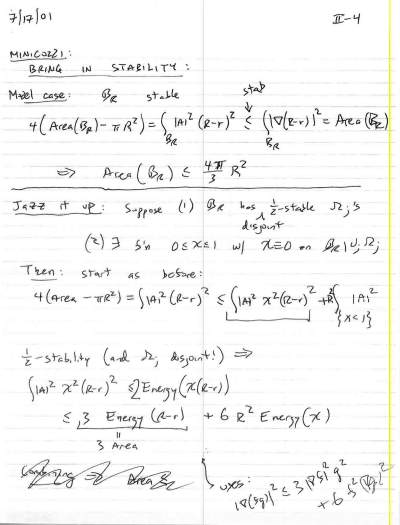 7/17/01 II-4
MINICOZZI:
BRING IN STABILITY:
Model case: B_R stable
stab
4(Area(B_R) - πR²) = ∫_{B_R} |A|² (R-r)² ≤ ∫_{B_R} |∇(R-r)|² = Area(B_R)
⇒ Area(B_R) ≤ 4π/3 R²
Jazz it up: Suppose (1) B_R has ½-stable Ω_i's
disjoint
(2) ∃ f'n 0≤χ≤1 w/ χ≡0 on B_R \ ∪_i Ω_i
Then: start as before:
4(Area - πR²) = ∫|A|² (R-r)² ≤ ∫|A|² χ² (R-r)² + R² ∫_{χ<1} |A|²
½-stability (and Ω_i disjoint!) ⇒
∫|A|² χ² (R-r)² ≤ 2 Energy(χ(R-r))
≤ 3 Energy(R-r) + 6 R² Energy(χ)
=
3 Area
uses:
|∇(fg)|² ≤ 3|∇f|² g²
+ 6 f² |∇g|²